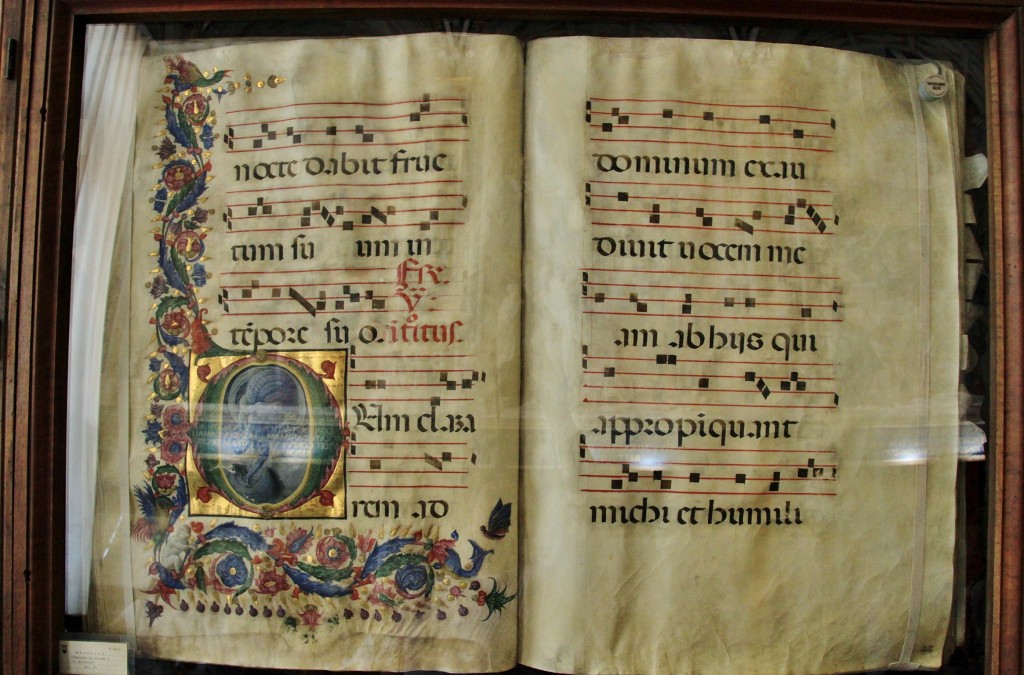 nocte dabit fruc
tum su um in
Fr.
tēpore suo. itroitus.
DUm clama
rem ad
dominum exau
diuit uocem me
am ab hijs qui
appropīquant
michi et humili